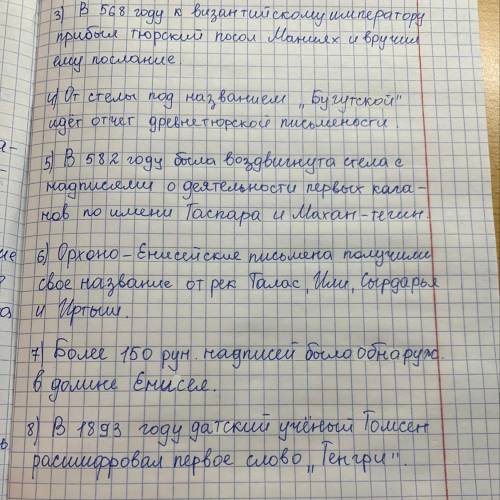 3) В 568 году к византийскому императору
прибыл тюрский посол Маниях и вручил
ему послание
4) От стелы под названием „Бугутской"
идёт отчет древнетюрской письмености.
5) В 582 году была воздвигнута стела с
надписями о деятельности первых кага-
нов по имени Таспара и Махан-тегин.
6) Орхоно-Енисейские письмена получили
свое название от рек Талас, Или, Сырдарья
и Иртыш.
7) Более 150 рун. надписей было обнаруж.
в долине Енисея.
8) В 1893 году датский учёный Томсен
расшифровал первое слово „Тенгри".